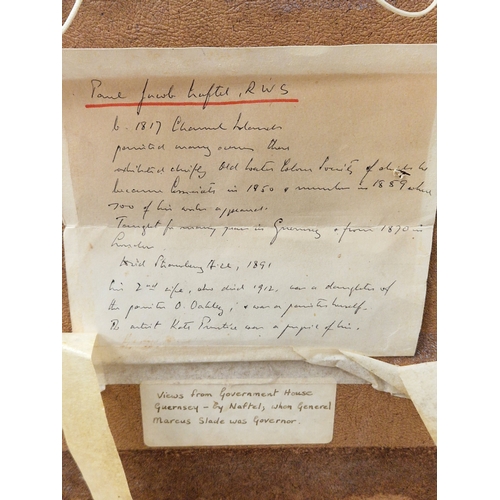 Paul Jacob Naftel, RWS
b. 1817 Channel Islands
painted many scenes there
exhibited chiefly Old Water Colour Society of which he
became Associate in 1850 & member in 1859 where
700 of his works appeared.
Taught for many years in Guernsey & from 1870 in
London.
died Strawberry Hill, 1891
his 2nd wife, who died 1912, was a daughter of
the painter O. Oakley, & was a painter herself.
The artist Kate Prentice was a pupil of his.
Views from Government House
Guernsey - By Naftel, when General
Marcus Slade was Governor.